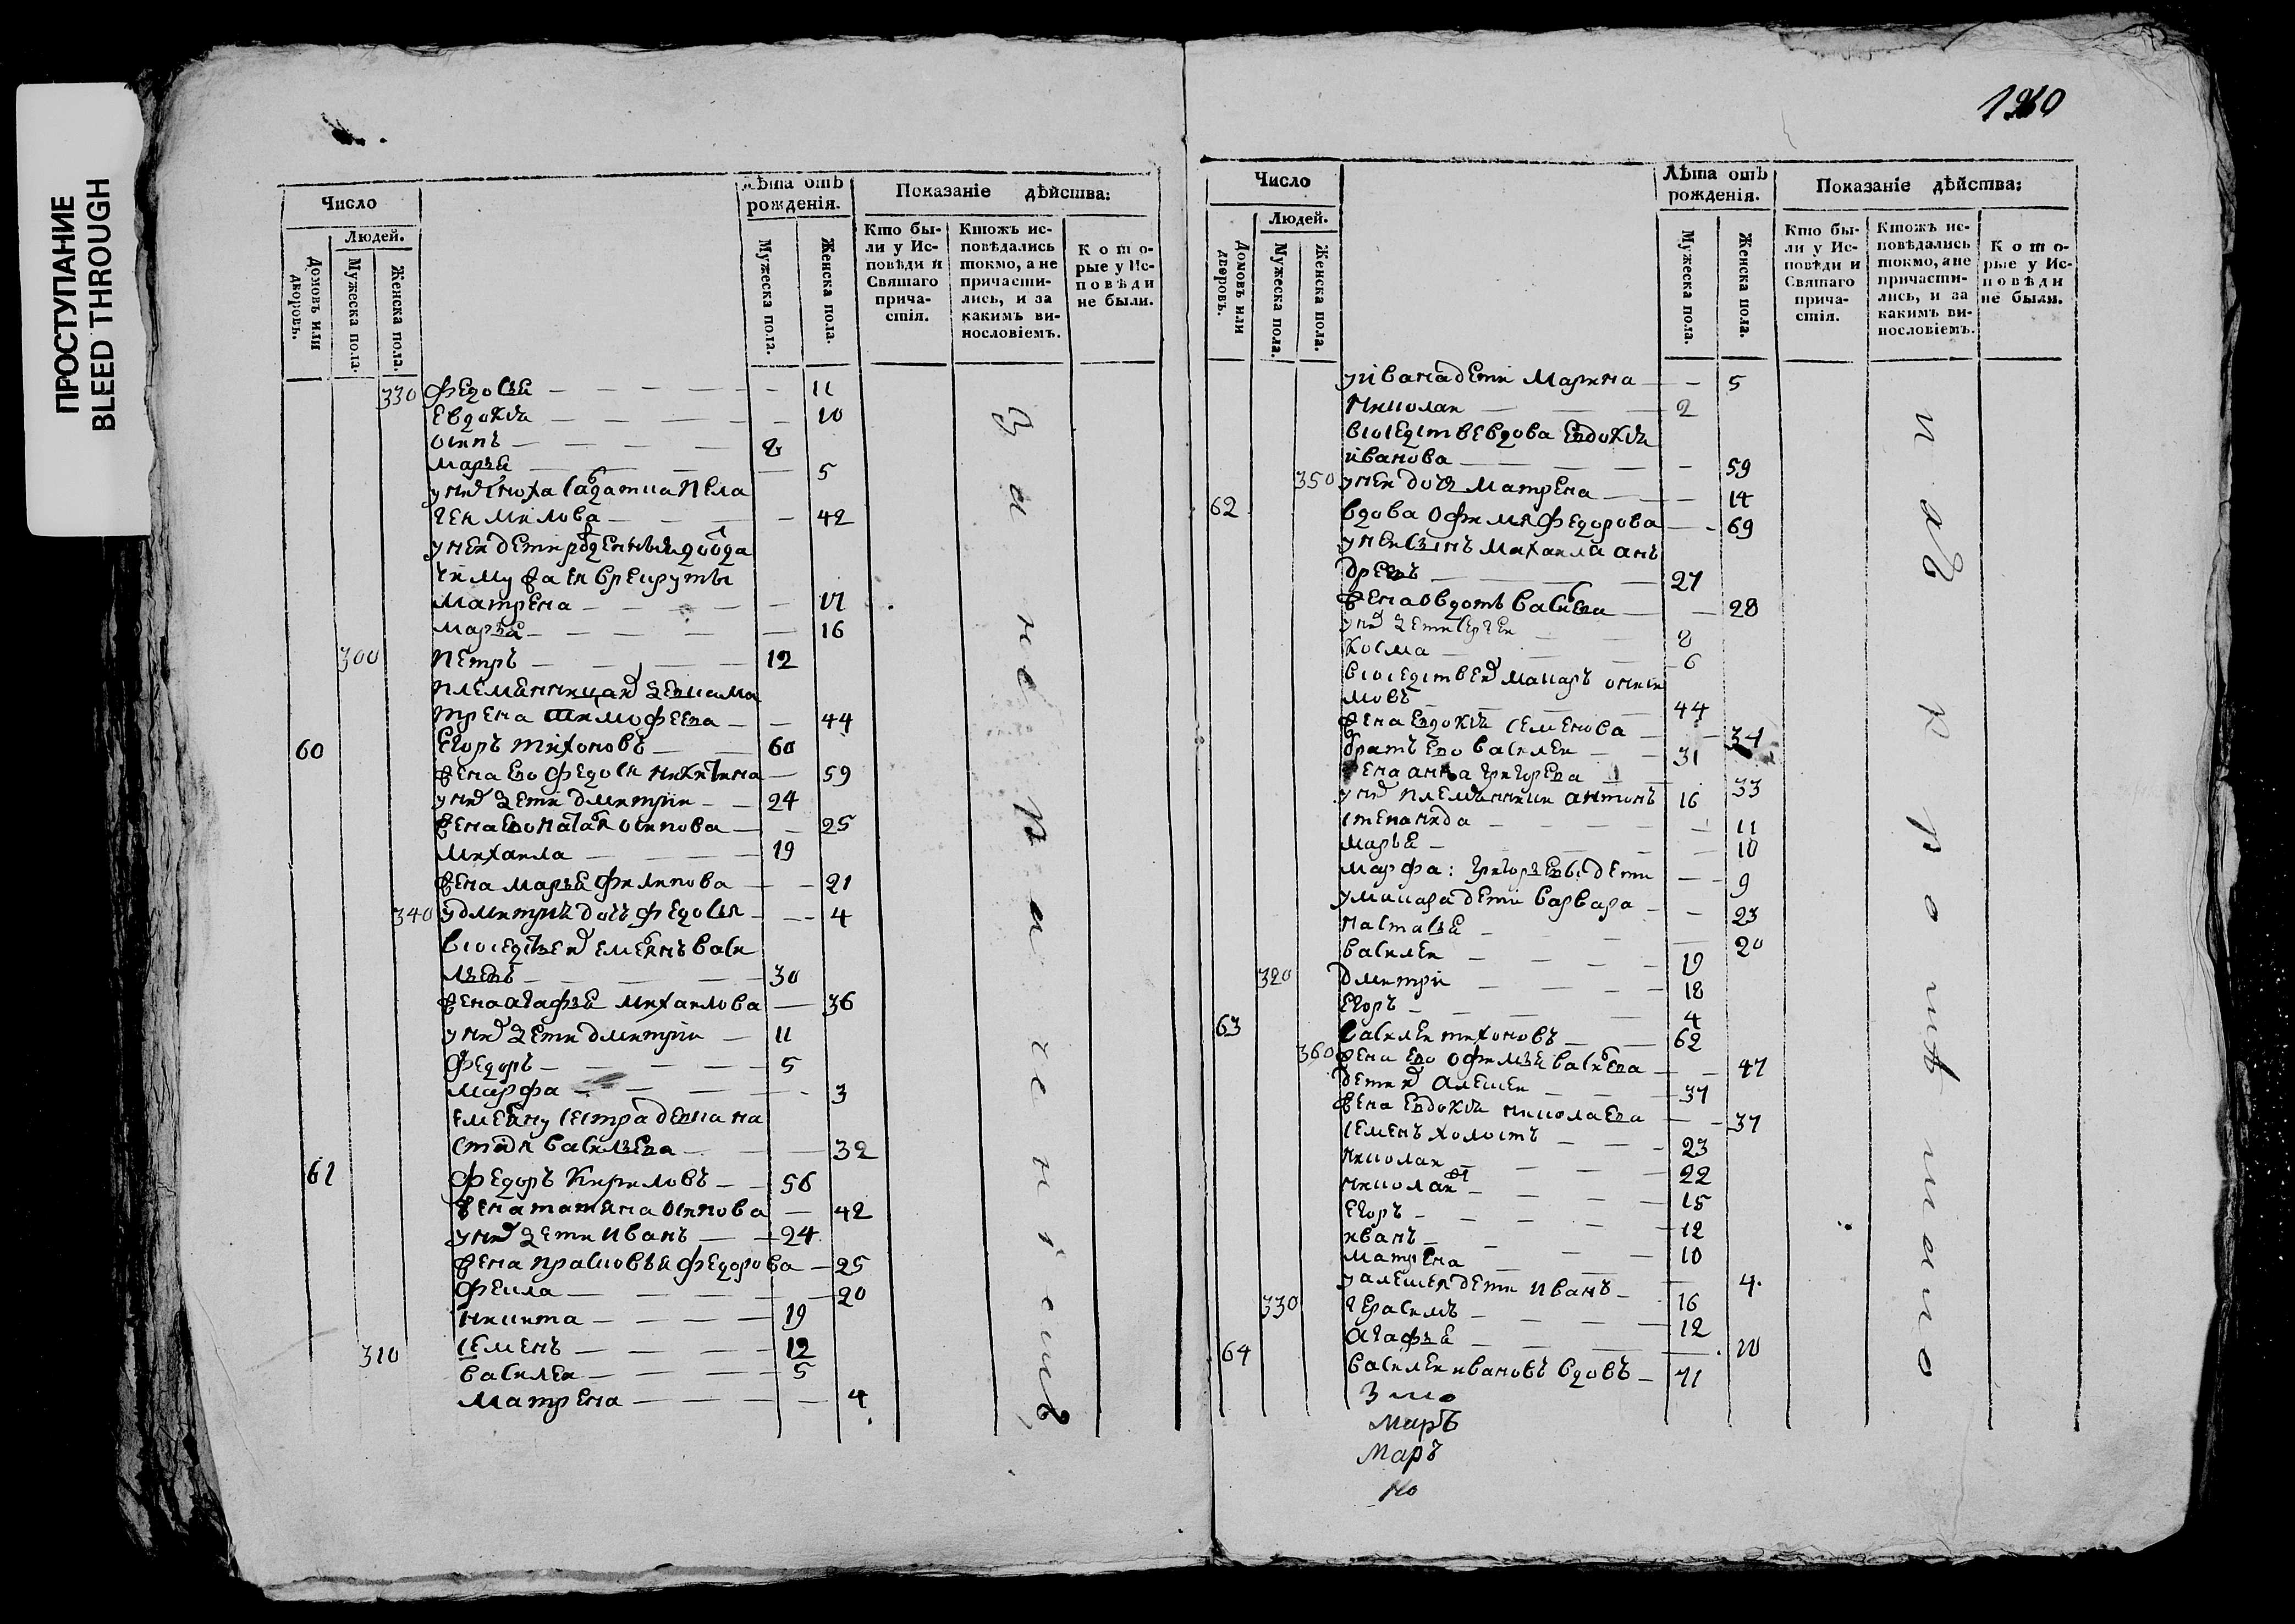 ПРОСТУПАНИЕ
BLEED THROUGH
Число
Людей.
Домовъ или дворовъ.
Мужеска пола.
Женска пола.
Лѣта отъ рожденія.
Мужеска пола.
Женска пола.
Показаніе дѣйства:
Кто бы-
ли у Ис-
повѣди и
Святаго
прича-
стія.
Ктожъ ис-
повѣдались
токмо, а не
причасти-
лись, и за
какимъ ви-
нословіемъ.
Кото-
рые у Ис-
повѣди
не были.
330 Федосья — 11
Евдокия — 10
Осипъ — 8
Марья — 5
унихъ сноха салдатка Пела
гея милова — 42
унея дети рожденныя до отда
чи мужа ея врекруты
Матрена — 17
Марья — 16
300 Петръ — 12
племянница их девка ма
трена тимофеева — 44
60 Егоръ тихоновъ — 60
жена ево федося никитина — 59
унихъ дети дмитрии — 24
жена ево осипова — 25
Михаила — 19
жена марья филипова — 21
340 удмитрия дочь федосья — 4
всоседстве их емелянъ васи
льевъ — 30
жена агафья михаилова — 36
унихъ дети дмитрии — 11
Федоръ — 5
Марфа — 3
емеляну сестра девка на
стася васильева — 32
61 Федоръ Кириловъ — 56
жена татьяна осипова — 42
унихъ дети Иванъ — 24
жена прасковья федорова — 25
Фекла — 20
никита — 19
310 Семенъ — 12
василеи — 5
матрена — 4
За не раченіемъ
1210
Число
Людей.
Домовъ или дворовъ.
Мужеска пола.
Женска пола.
Лѣта отъ рожденія.
Мужеска пола.
Женска пола.
Показаніе дѣйства:
Кто бы-
ли у Ис-
повѣди и
Святаго
прича-
стія.
Ктожъ ис-
повѣдались
токмо, а не
причасти-
лись, и за
какимъ ви-
нословіемъ.
Кото-
рые у Ис-
повѣди
не были.
уивана дети Марина — 5
николаи — 2
всоседстве вдова Евдокия
иванова — 59
350 унеи дочь Матрена — 14
62 вдова офимя федорова — 69
унеи сынъ михаила ан
дреевъ — 27
жена овдотья василева — 28
унихъ дети сергеи — 8
косма — 6
всоседстве их макаръ
мовъ — 44
жена евдокия семенова — 34
братъ ево василеи — 31
жена анна григорева — 33
унихъ племянники антонъ — 16
степанида — 11
марья — 10
марфа: григорьевы дети — 9
умакара дети варвара — 23
настасья — 20
василеи — 19
320 дмитри — 18
Егоръ — 4
63 василеи тихоновъ — 62
360 жена ево офимья василева — 47
дети их алексеи — 37
жена евдокия николаева — 37
семенъ холостъ — 23
николаи — 22
николаи — 15
Егоръ — 12
иванъ — 10
матрена — 4
уалексея дети иванъ — 16
330 герасимъ — 12
агафья — 10
64 василеи ивановъ вдовъ — 71
Маръ
Маръ